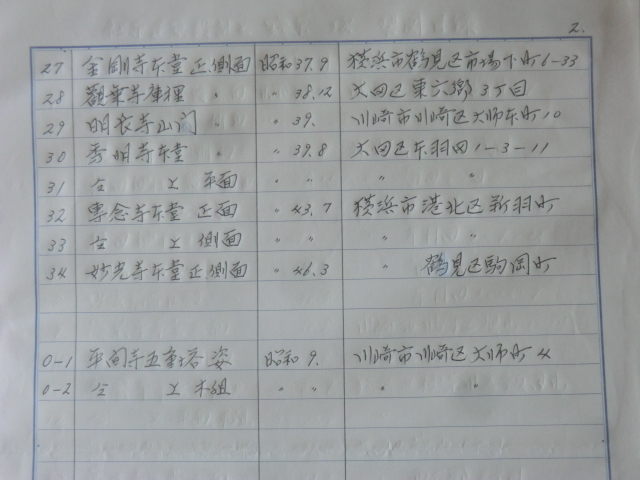 2.
27 金剛寺本堂正側面 昭和37.9 横浜市鶴見区市場下町6-33
28 観乗寺庫裡 〃 〃 38.12 大田区東六郷3丁目
29 明長寺山门 〃 39. 川崎市川崎区大师本町10
30 本堂 〃 39.8 大田区本羽田1-3-11
31 仝 上 平面 〃 〃 〃 〃
32 専念寺本堂 正面 〃 43.7 横浜市港北区新羽町
33 仝 上 側面 〃 〃 〃 〃
34 妙光寺本堂正側面 〃 46.3 〃 鶴見区駒岡町
0-1 平间寺五重塔 姿 昭和9. 川崎市川崎区大师町4
0-2 仝 上 木組 〃 〃 〃 〃